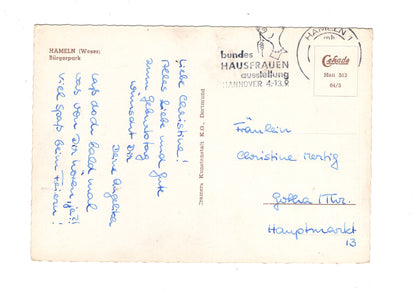 HAMELN (Weser)
Bürgerpark
Liebe Christine!
Alles liebe und gute
zum Geburtstag
wünscht Dir
Deine Angelika
Laß doch bald mal
was von Dir hören, ja?!
Viel Spaß beim Feiern!
Cramers Kunstanstalt K.G., Dortmund
bundes
HAUSFRAUEN
ausstellung
HANNOVER 4.-13.9.
HAMELN 1
mb
Cekade
Han 313
64/3
Fräulein
Christine Mertig
Gotha / Thr.
Hauptmarkt
13